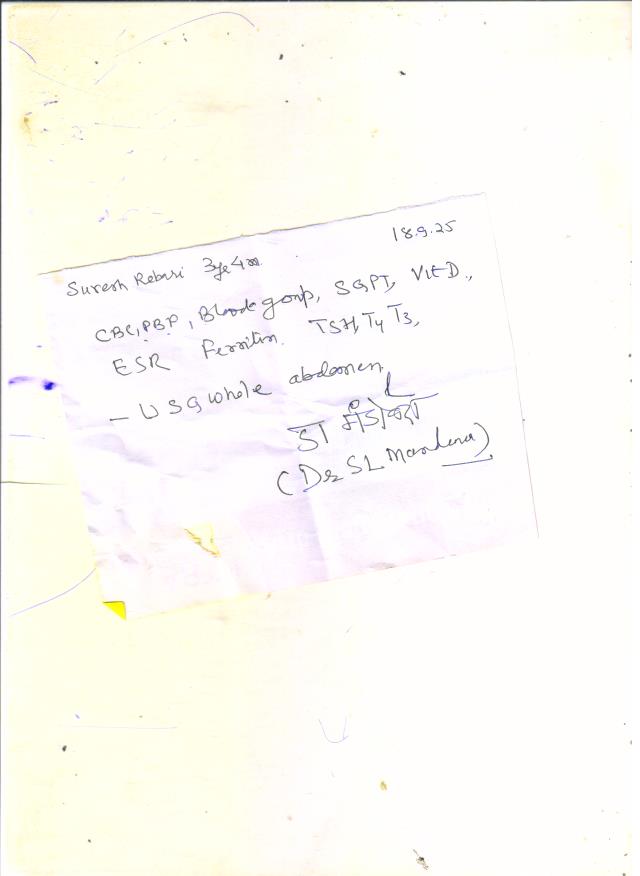 18.9.25
Suresh Rebari 3ye4m
CBC, PBF, Blood group, SGPT, Vit D.,
ESR Ferritin. TSH, T4 T3,
- USG whole abdomen
(Dr SL Mandawa)